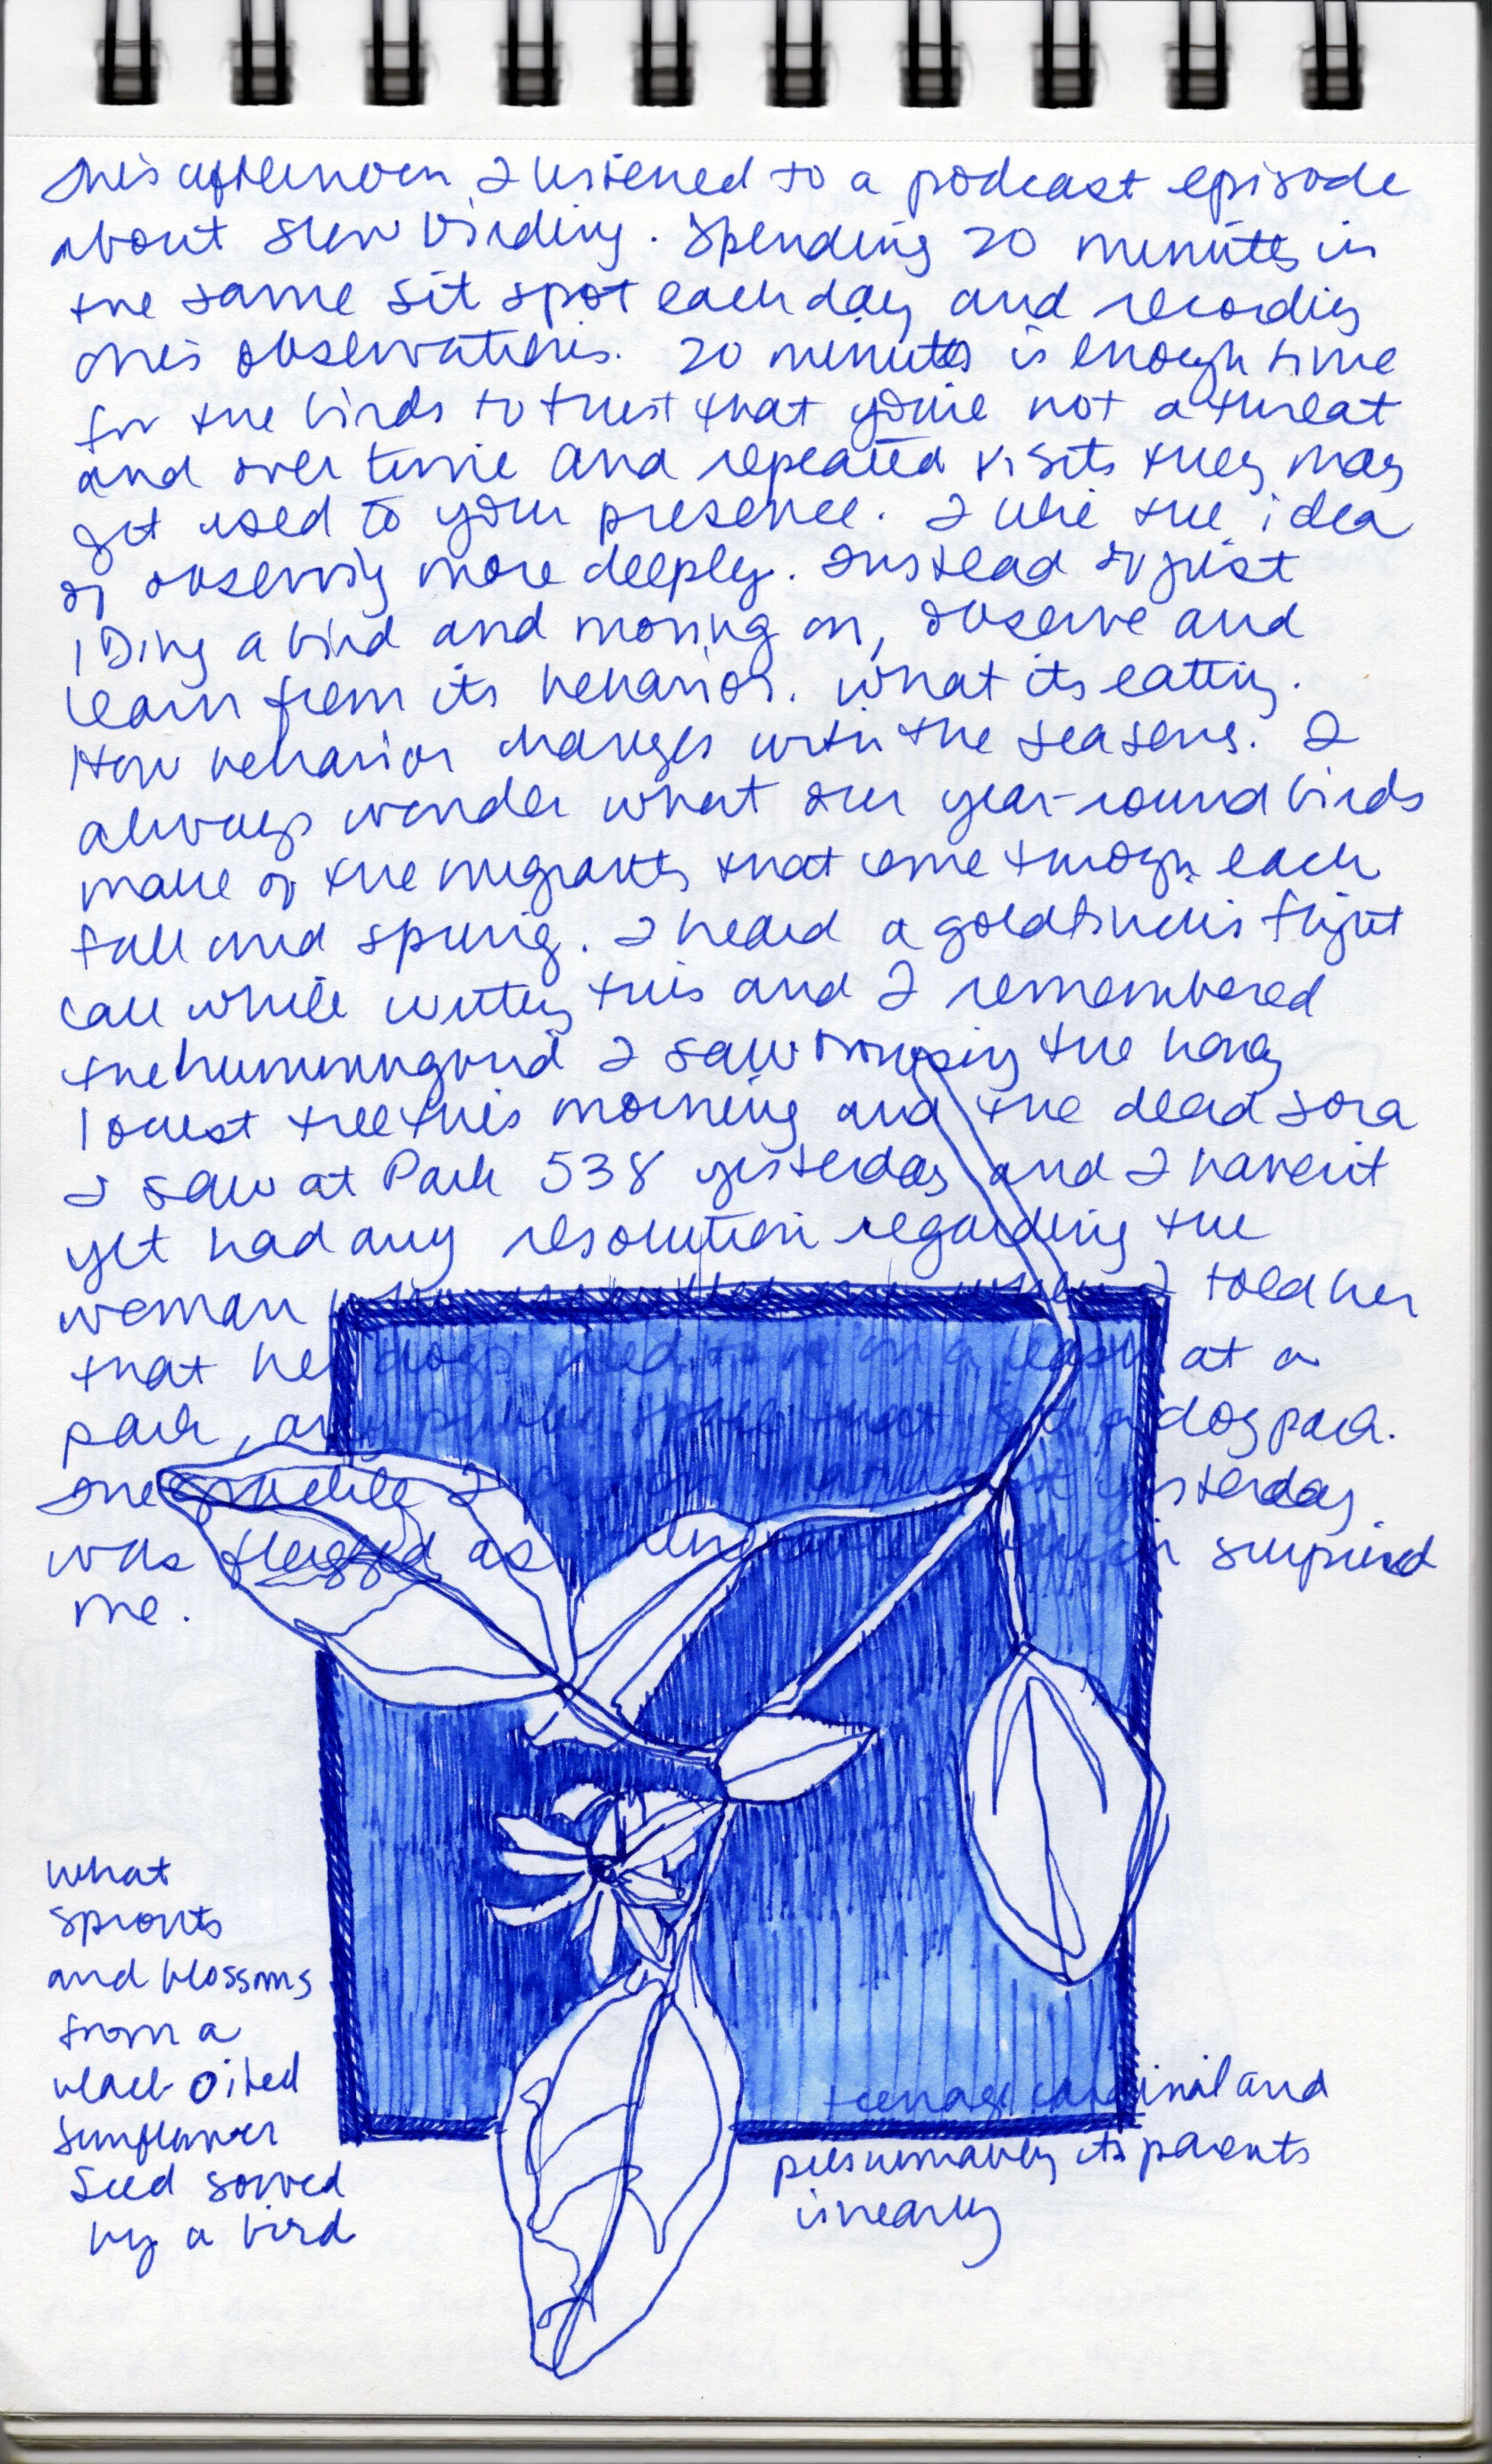 This afternoon I listened to a podcast episode
about slow birding. Spending 20 minutes in
the same sit spot each day and recording
one's observations. 20 minutes is enough time
for the birds to trust that you're not a threat
and over time and repeated visits they may
get used to your presence. I like the idea
of observing more deeply. Instead of just
IDing a bird and moving on, observe and
learn from its behavior. What its eating.
How behavior changes with the seasons. I
always wonder what our year-round birds
make of the migrants that come through each
fall and spring. I heard a goldfinch's flight
call while writing this and I remembered
the hummingbird I saw browsing the honey
locust tree this morning and the dead sora
I saw at Park 538 yesterday and I haven't
yet had any resolution regarding the
woman who when I told her
that her dogs need to be on a leash at a
park, any public space that isn't a dog park.
The I yesterday
was flagged as which surprised
me.
what
sprouts
and blossoms
from a
black oiled
sunflower
seed sowed
by a bird
teenage cardinal and
presumably its parents
is nearby